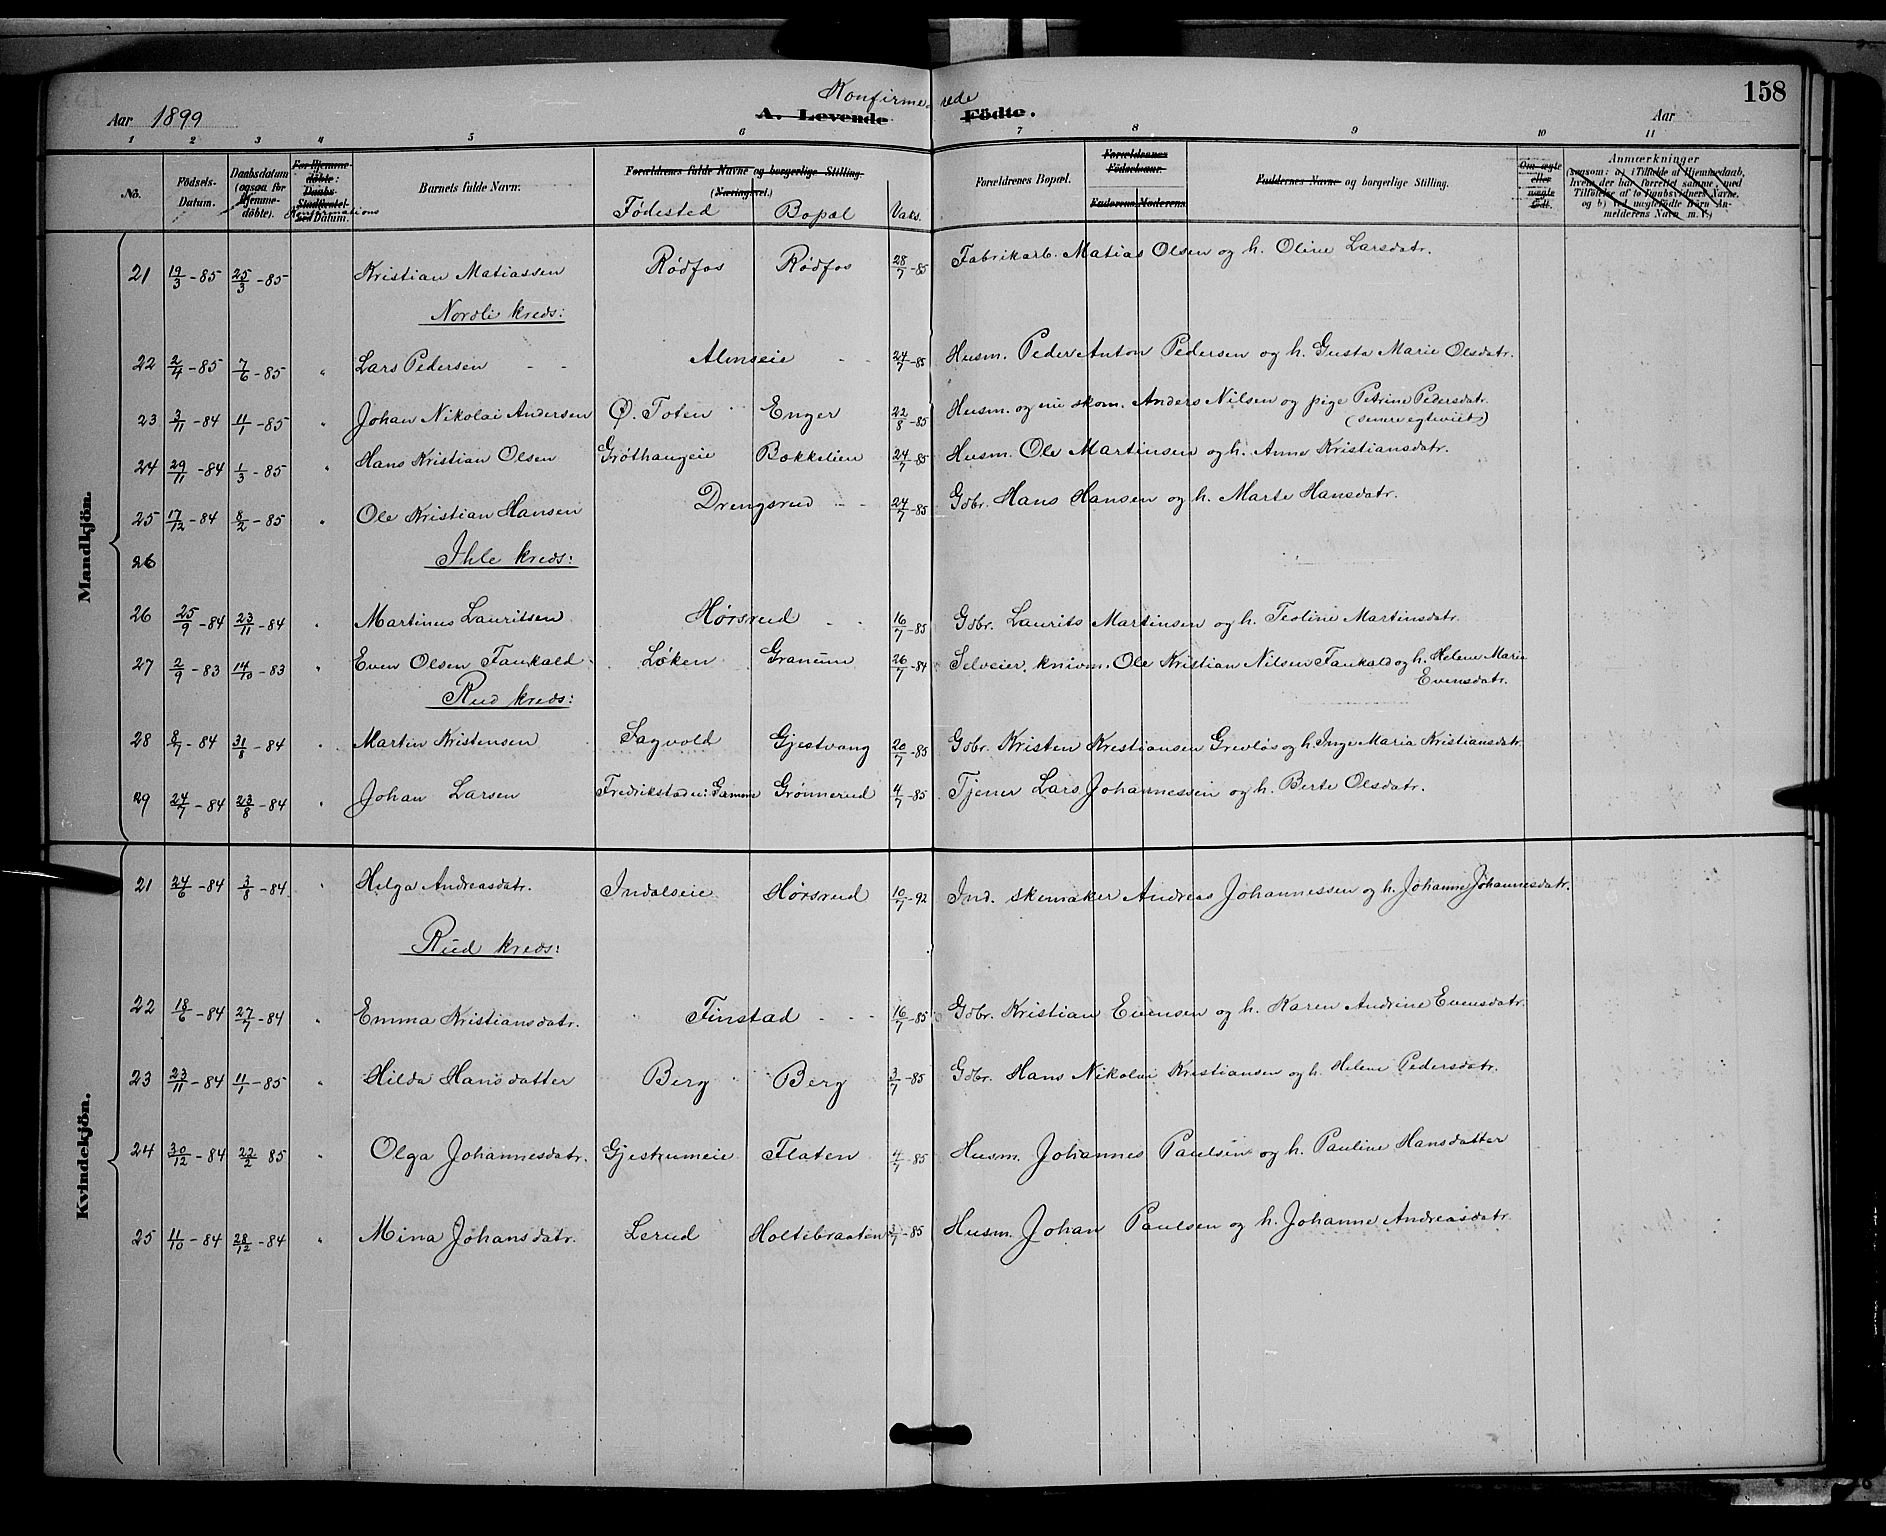 Konfirmerede
158
Aar 1899 A. Levende Födte. Aar
1 2 3 4 5 6 7 8 9 10 11
No. Födsels-Datum. Daabsdatum (ogsaa for hjemmedöbte). For Hjemmedöbte: Daabs-Stadfæstelses Datum. Konfirmations Barnets fulde Navn. Forældrenes fulde Navne og borgerlige Stilling. (Næringsvei.) Forældrenes Bopæl. Forældrenes Födselsaar. Faderens Moderens Faddernes Navne og borgerlige Stilling. Om ægte eller uægte födt. Anmærkninger (saasom: a) i Tilfælde af Hjemmedaab, hvem der har forrettet samme, med Tilföielse af to Daabsvidners Navne, og b) ved uægtefödte Börn Anmelderens Navn m. V.)
Fødested Bopæl Vaks.
Mandkjön.
21 19/3-85 25/3-85 Kristian Matiassen Rødfos Rødfos 28/7-85 Fabrikarb. Matias Olsen og h. Oline Larsdatr.
Nordli kreds:
22 2/4-85 7/6-85 " Lars Pedersen - - Almseie - - 24/7-85 Husm. Peder Anton Pedersen og h. Gusta Marie Olsdatr.
23 3/11-84 11/1-85 " Johan Nikolai Andersen Ø. Toten Enger 22/8-85 Husm. og nu skom. Anders Nilsen og pige Petrine Pedersdatr.
(senere egteviet)
24 29/11-84 1/3-85 " Hans Kristian Olsen Grøthaugeie Bækkelien 24/7-85 Husm. Ole Martinsen og h. Anne Kristiansdatr.
25 17/12-84 8/2-85 " Ole Kristian Hansen Drengsrud - - 24/7-85 Gdbr. Hans Hansen og h. Marte Hansdatr.
26 Ihle kreds:
26 25/9-84 23/11-84 " Martinus Lauritsen Hørsrud - - 16/7-85 Gdbr. Laurits Martinsen og h. Teoline Martinsdatr.
27 2/9-83 14/10-83 " Even Olsen Faukald Løken Granum 26/7-84 Selveier, knivm. Ole Kristian Nilsen Faukald og h. Helene Marie
Evensdatr.
Rud kreds:
28 8/7-84 31/8-84 " Martin Kristensen Fagvold Gjestvang 20/7-85 Gdbr. Kristen Kristiansen Grevløs og h. Inge Maria Kristiansdatr.
29 24/7-84 23/8-84 " Johan Larsen Fredrikstad Grønnerud 4/7-85 Tjener Lars Johannessen og h. Berte Olsdatr.
Kvindekjön.
21 24/6-84 3/8-84 " Helga Andreasdatr. Indalseie Hørsrud 10/7-92 Ind. skomaker Andreas Johannessen og h. Johanne Johannesdatr.
Rud kreds:
22 18/6-84 27/7-84 " Emma Kristiansdatr. Finstad - - - 16/7-85 Gdbr. Kristian Evensen og h. Karen Andrine Evensdatr.
23 23/11-84 11/1-85 " Hilda Hansdatter Berg Berg 3/7-85 Gdbr. Hans Nikolai Kristiansen og h. Helene Pedersdatr.
24 30/12-84 22/2 85 " Olga Johannesdatr. Gjestrumeie Flaten 4/7-85 Husm. Johannes Paulsen og h. Pauline Hansdatter
25 11/10-84 28/12-84 " Mina Johansdatr. Lerud Holtebraaten 3/7-85 Husm. Johan Paulsen og h. Johanne Andreasdatr.